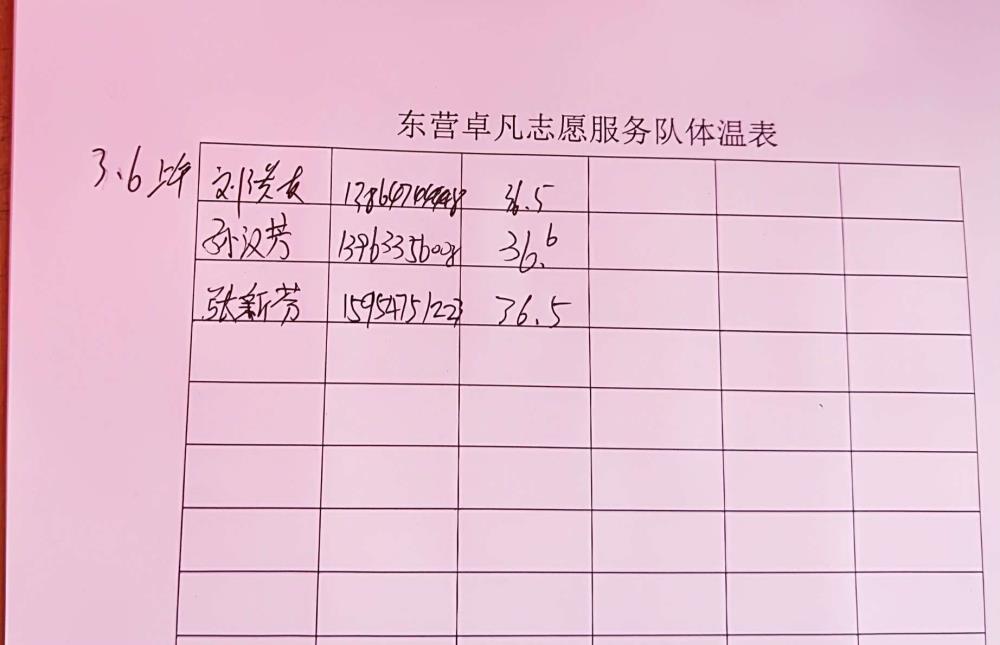 东营卓凡志愿服务队体温表
3.6上午 刘洪友 36.5
孙汉芳 13963356008 36.6
张新芳 15954751223 36.5